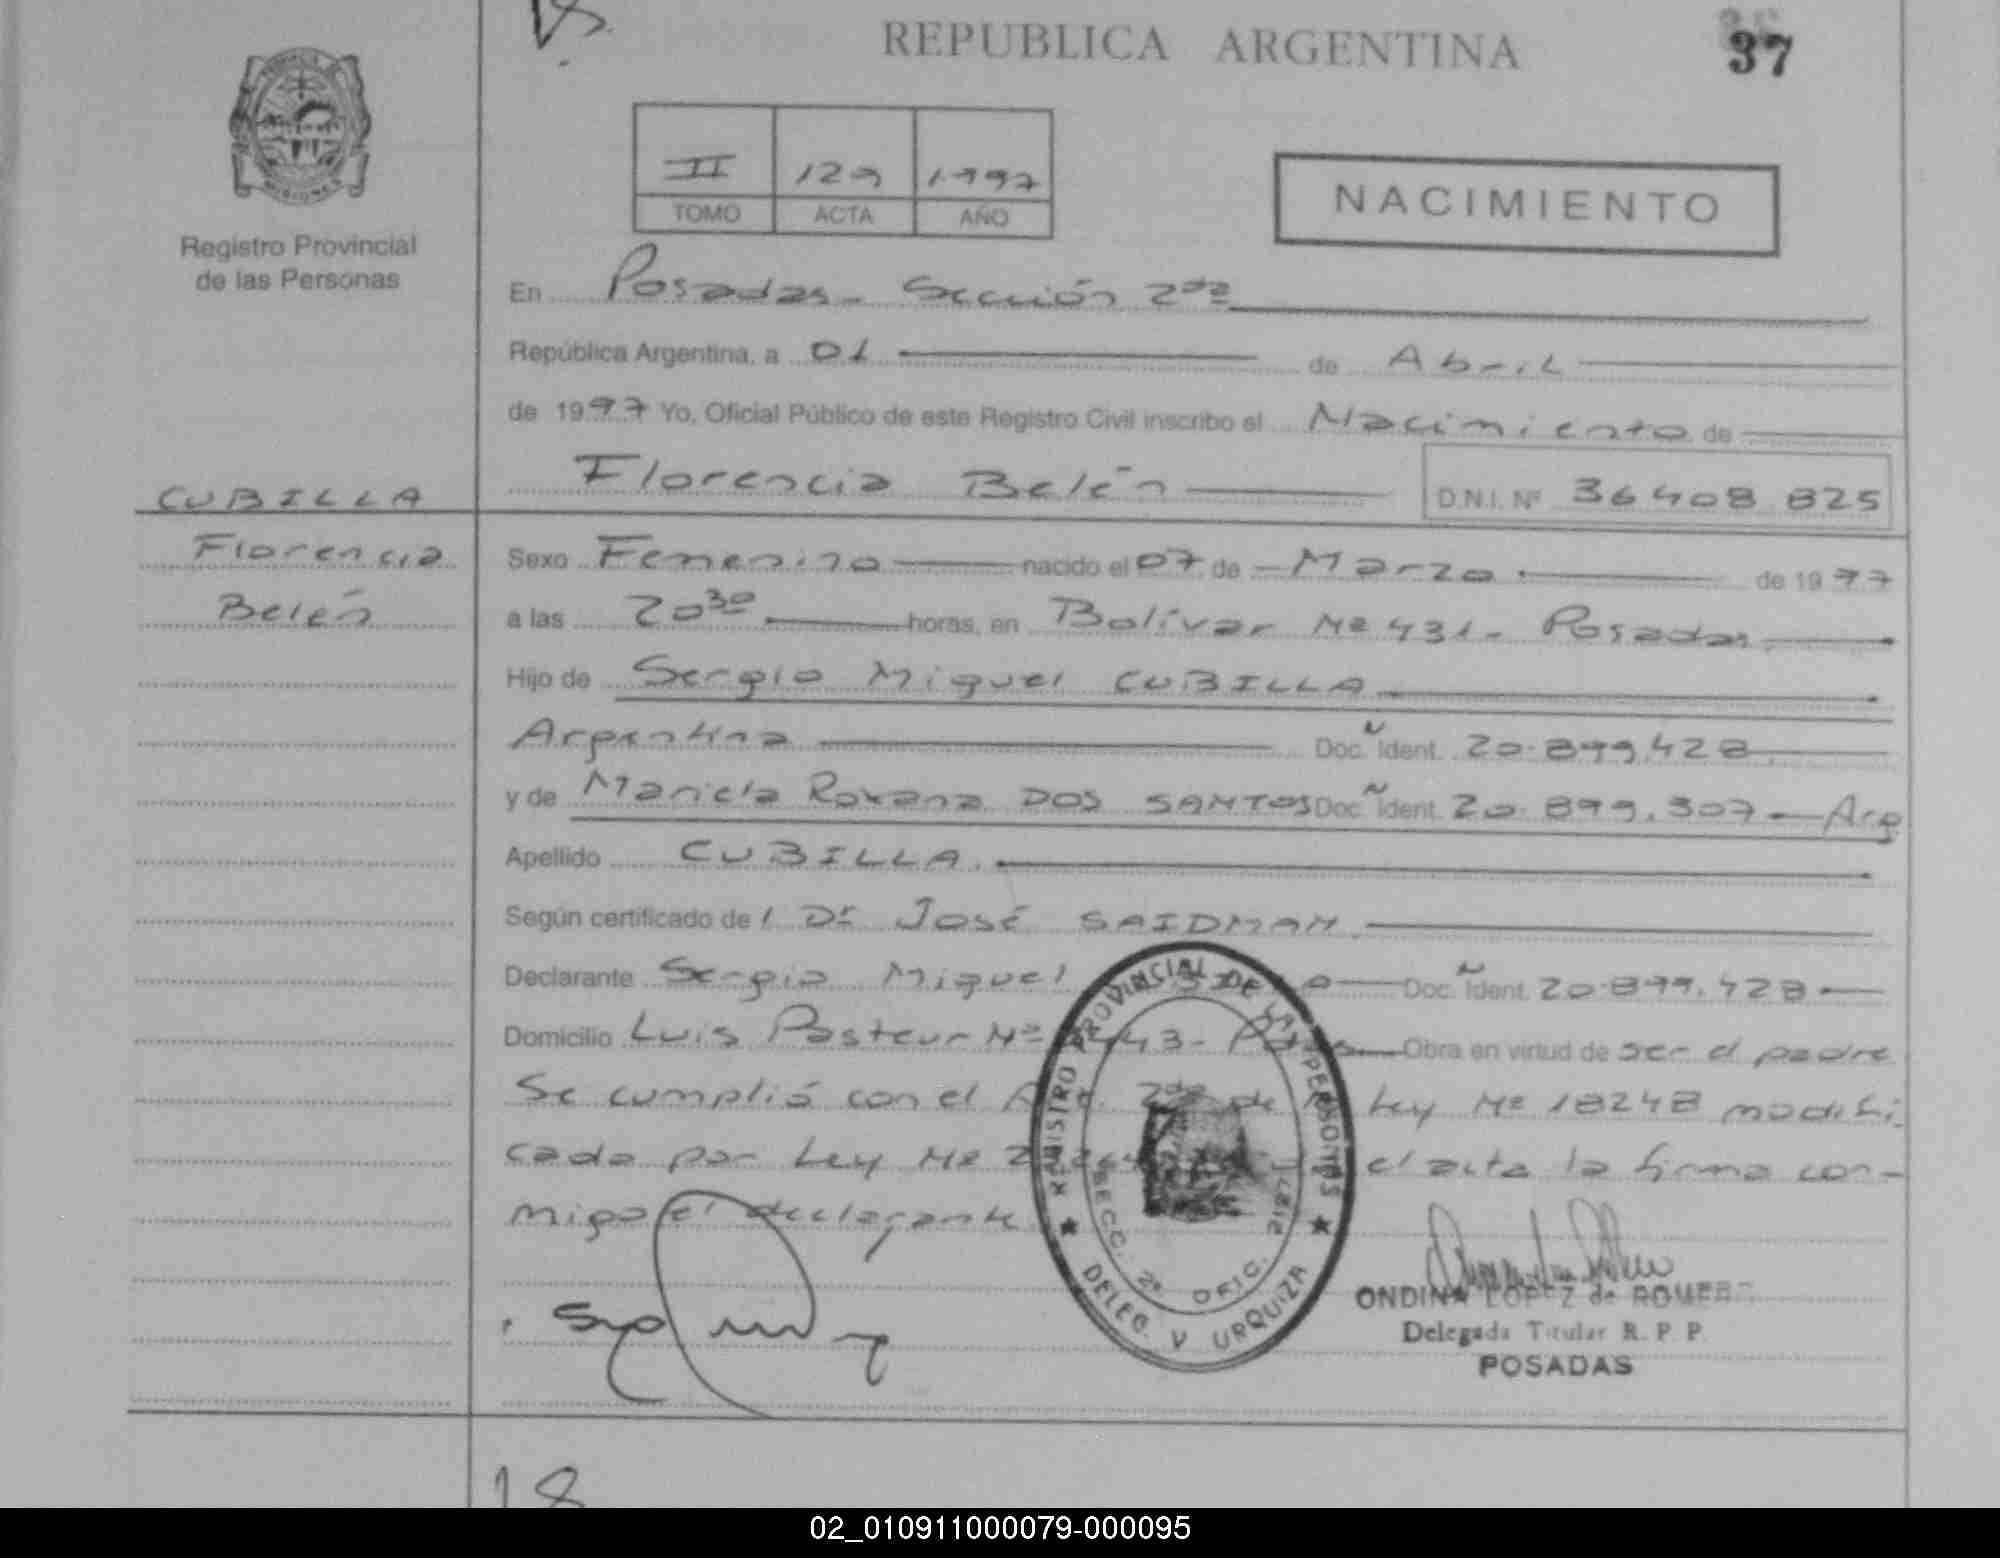 REPUBLICA ARGENTINA
37
MISIONES
Registro Provincial
de las Personas
II 129 1997
TOMO ACTA AÑO
NACIMIENTO
En Posadas - Sección 2da
República Argentina, a 01 de Abril
de 1997 Yo, Oficial Público de este Registro Civil inscribo el Nacimiento de
Florencia Belén D.N.I. Nº 36408825
CUBILLA
Florencia
Belén
Sexo Femenino nacido el 07 de Marzo de 1997
a las 20 30 horas, en Bolívar Nº 431 - Posadas
Hijo de Sergio Miguel CUBILLA
Argentina Doc. Ident. 20.899.428
y de Mariela Roxana DOS SANTOS Doc. Ident. 20.899.307 - Arg
Apellido CUBILLA
Según certificado de l Dr José SAIDMAN
Declarante Sergio Miguel Doc. Ident. 20.899.428
Domicilio Luis Pasteur Nº Obra en virtud de ser el padre
Se cumplió con el 2da de Ley Nº 18248 modifi
cada por Ley Nº el acta la firma con-
migo el declarante
REGISTRO PROVINCIAL DE LAS PERSONAS
SECC. 2º OFIC.
DELEG. V URQUIZA
ONDINA LOPEZ de ROMERO
Delegada Titular R. P. P.
POSADAS
18
02_010911000079-000095